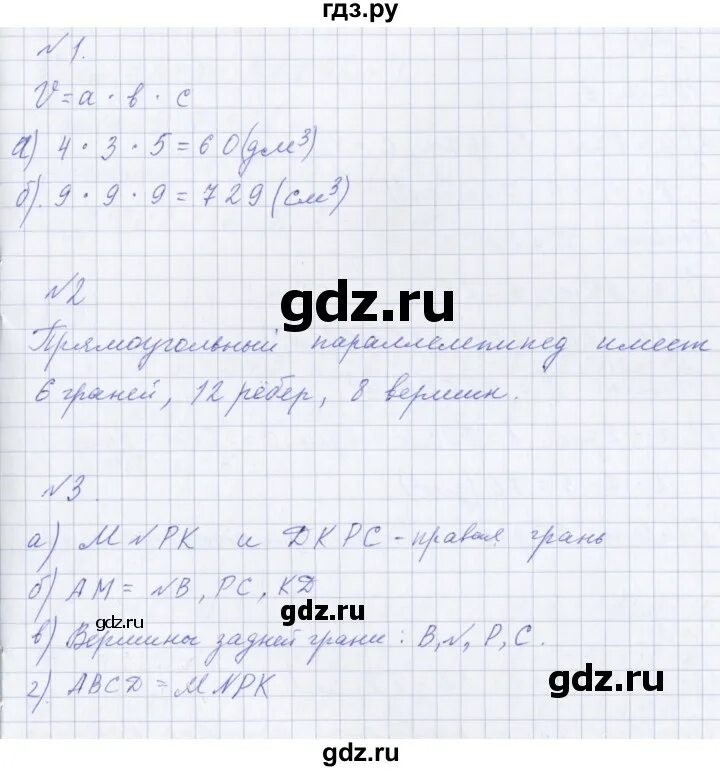 гдз.ру
№1.
V = a · в · с
а) 4 · 3 · 5 = 60 (дм³)
б). 9 · 9 · 9 = 729 (см³)
№2
gdz.ru
Прямоугольный параллелепипед имеет
6 граней, 12 рёбер, 8 вершин.
№3.
а) MNPK и DKPC - правая грань
б) AM = NB, PC, KD
gdz.ru
gdz.ru
в) Вершины задней грани: B, N, P, C.
г). ABCD = MNPK
gdz.ru
gdz.ru